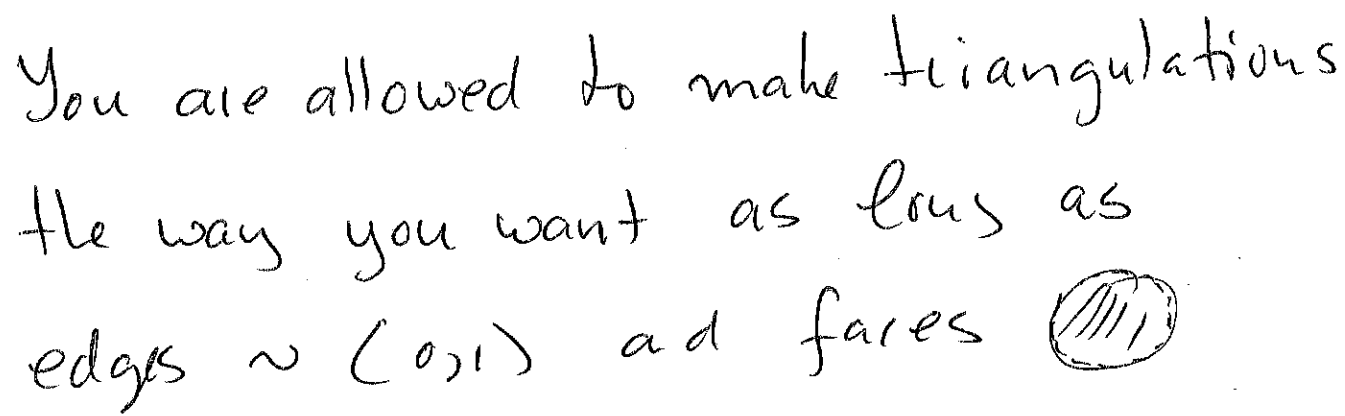 You are allowed to make triangulations
the way you want as long as
edges ~ (0,1) ad faces